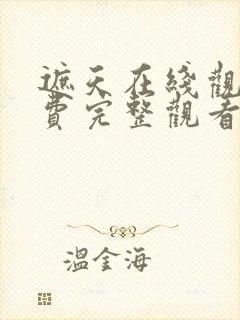 遮天在綫觀
費完整觀看
溫金海